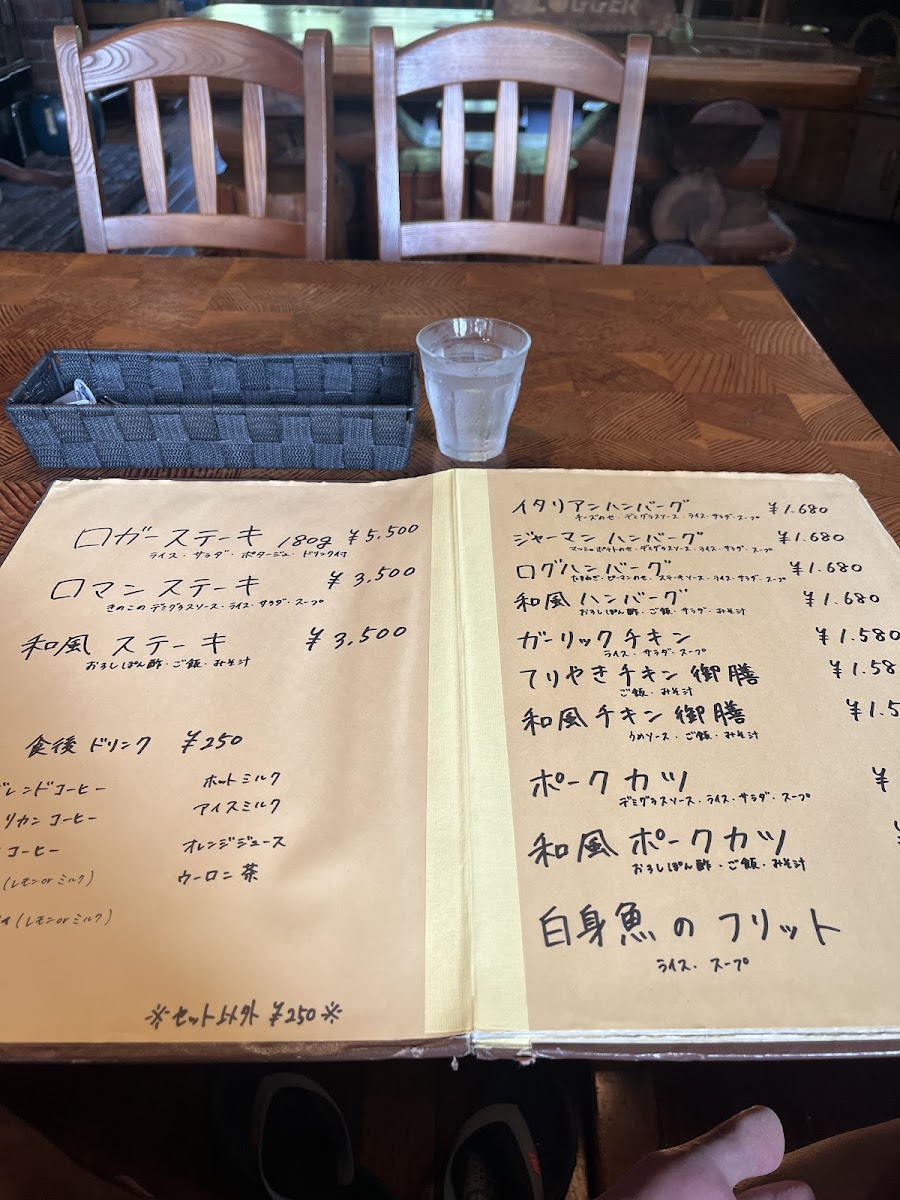 LOGGER
ロガーステーキ 180g ¥5,500
ライス・サラダ・ポタージュ・ドリンク付
ロマンステーキ ¥3,500
きのこのデミグラスソース・ライス・サラダ・スープ
和風ステーキ ¥3,500
おろしぽん酢・ご飯・みそ汁
食後ドリンク ¥250
ブレンドコーヒー ホットミルク
リカンコーヒー アイスミルク
コーヒー オレンジジュース
(レモンorミルク) ウーロン茶
(レモンorミルク)
※セット以外 ¥250※
イタリアンハンバーグ ¥1.680
チーズのせ・デミグラスソース・ライス・サラダ・スープ
ジャーマンハンバーグ ¥1.680
マッシュポテトのせ・デミグラスソース・ライス・サラダ・スープ
ログハンバーグ ¥1.680
たまねぎ・ピーマンのせ・ステーキソース・ライス・サラダ・スープ
和風ハンバーグ ¥1.680
おろしぽん酢・ご飯・サラダ・みそ汁
ガーリックチキン ¥1.580
ライス・サラダ・スープ
てりやきチキン御膳 ¥1.58
ご飯・みそ汁
和風チキン御膳 ¥1.5
うめソース・ご飯・みそ汁
ポークカツ ¥
デミグラスソース・ライス・サラダ・スープ
和風ポークカツ ¥
おろしぽん酢・ご飯・みそ汁
白身魚のフリット
ライス・スープ